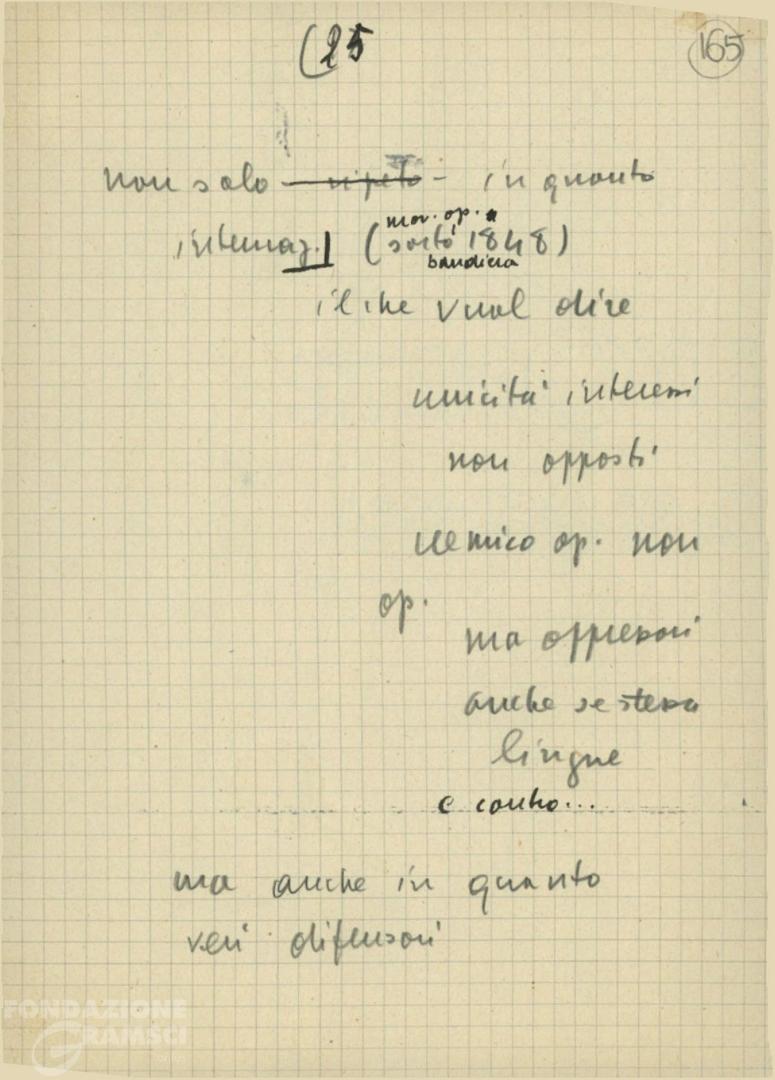 (25
165
non solo - ripeto - in quanto
mov. op.
internaz. (sortò 1848)
bandiera
il che vuol dire
unicità interessi
non opposti
nemico op. non
op.
ma oppressori
anche se stessa
lingue
e contro...
ma anche in quanto
veri difensori
FONDAZIONE
GRAMSCI